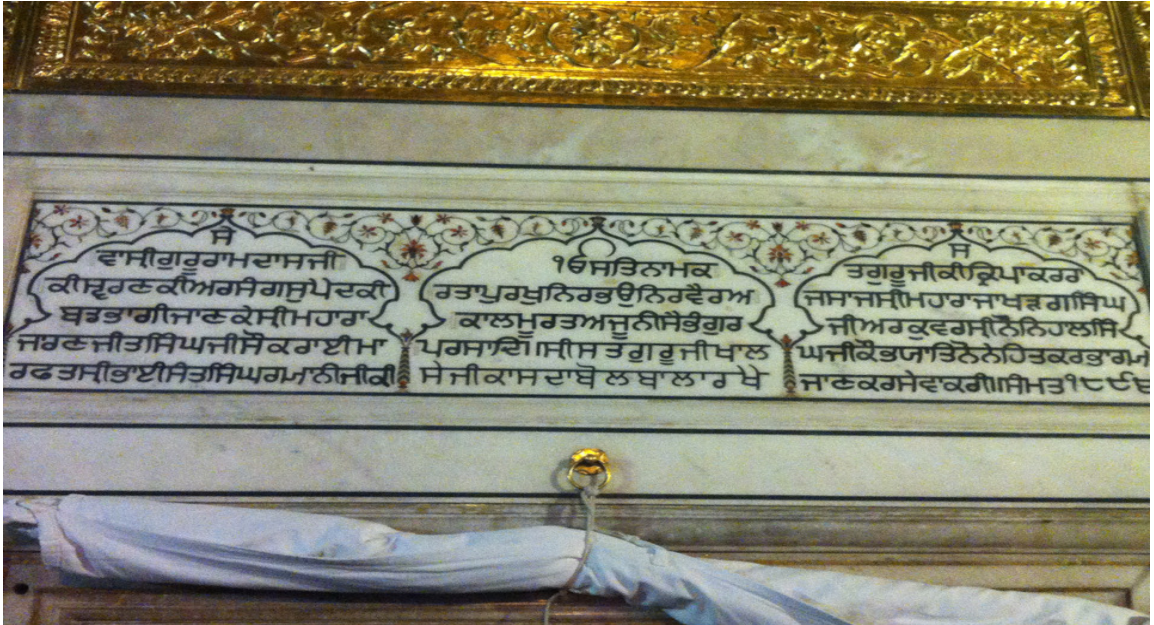 ਸੇ
ਵਾਸੀਗੁਰੂਰਾਮਦਾਸਜੀ
ਕੀਸ੍ਵਰਣਕੀਅਰਸੰਗਸੁਪੇਦਕੀ
ਬਡਭਾਗੀਜਾਣਕੇਸੀਮਹਾਰਾ
ਜਾਰਣਜੀਤਸਿੰਘਜੀਸੌਕਰਾਈਮਾ
ਰਫਤਸੀਭਾਈਸੰਤਸਿੰਘਗਯਾਨੀਜੀਕੀ
ੴਸਤਿਨਾਮਕ
ਰਤਾਪੁਰਖੁਨਿਰਭਉਨਿਰਵੈਰਅ
ਕਾਲਮੂਰਤਅਜੂਨੀਸੈਭੰਗੁਰ
ਪਰਸਾਦਿ॥ਸੀਸਤਗੁਰੂਜੀਖਾਲ
ਸੇਜੀਕਾਸਦਾਬੋਲਬਾਲਾਰਖੇ
ਸ
ਤਗੁਰੂਜੀਕੀਕ੍ਰਿਪਾਕਰਰ
ਜਸਾਜਸੀਮਹਾਰਾਜਾਖੜਗਸਿੰਘ
ਜੀਅਰਕੁਵਰਸੀਨੌਨਿਹਾਲਸਿੰ
ਘਜੀਕੈਭਯਾਤਿਨੋਨੇਹਿਤਕਰਭਾਗਮ
ਜਾਣਕਰਸੇਵਾਕਰੀ॥ਸੰਮਤ੧੮੯੬